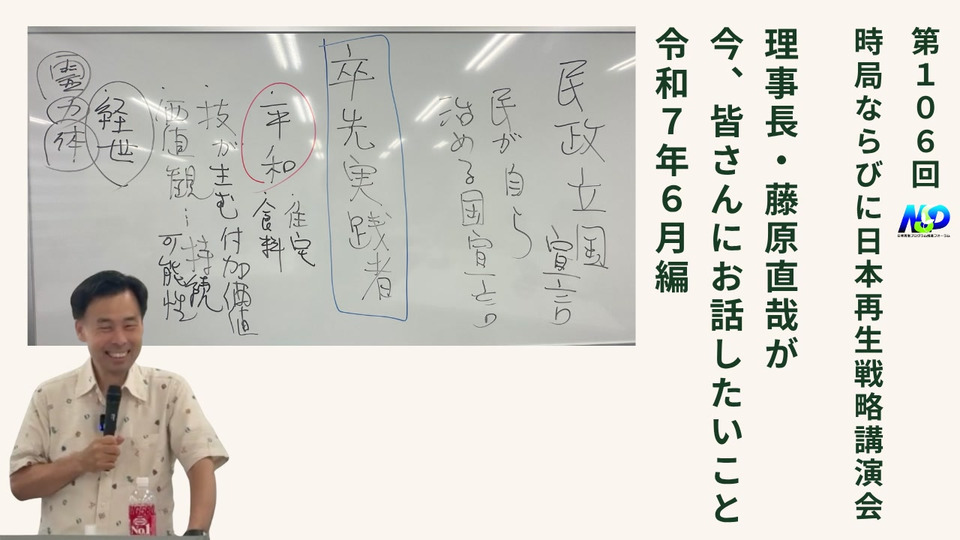 第106回
時局ならびに日本再生戦略講演会
理事長・藤原直哉が
今、皆さんにお話したいこと
令和7年6月編
NSP
民政立国
宣言
民が自ら
治める国宣言
卒先実践者
・平和
・住宅
・食料
・技が生む付加価値
・価値観…持続可能性
経世
霊力体
No.1